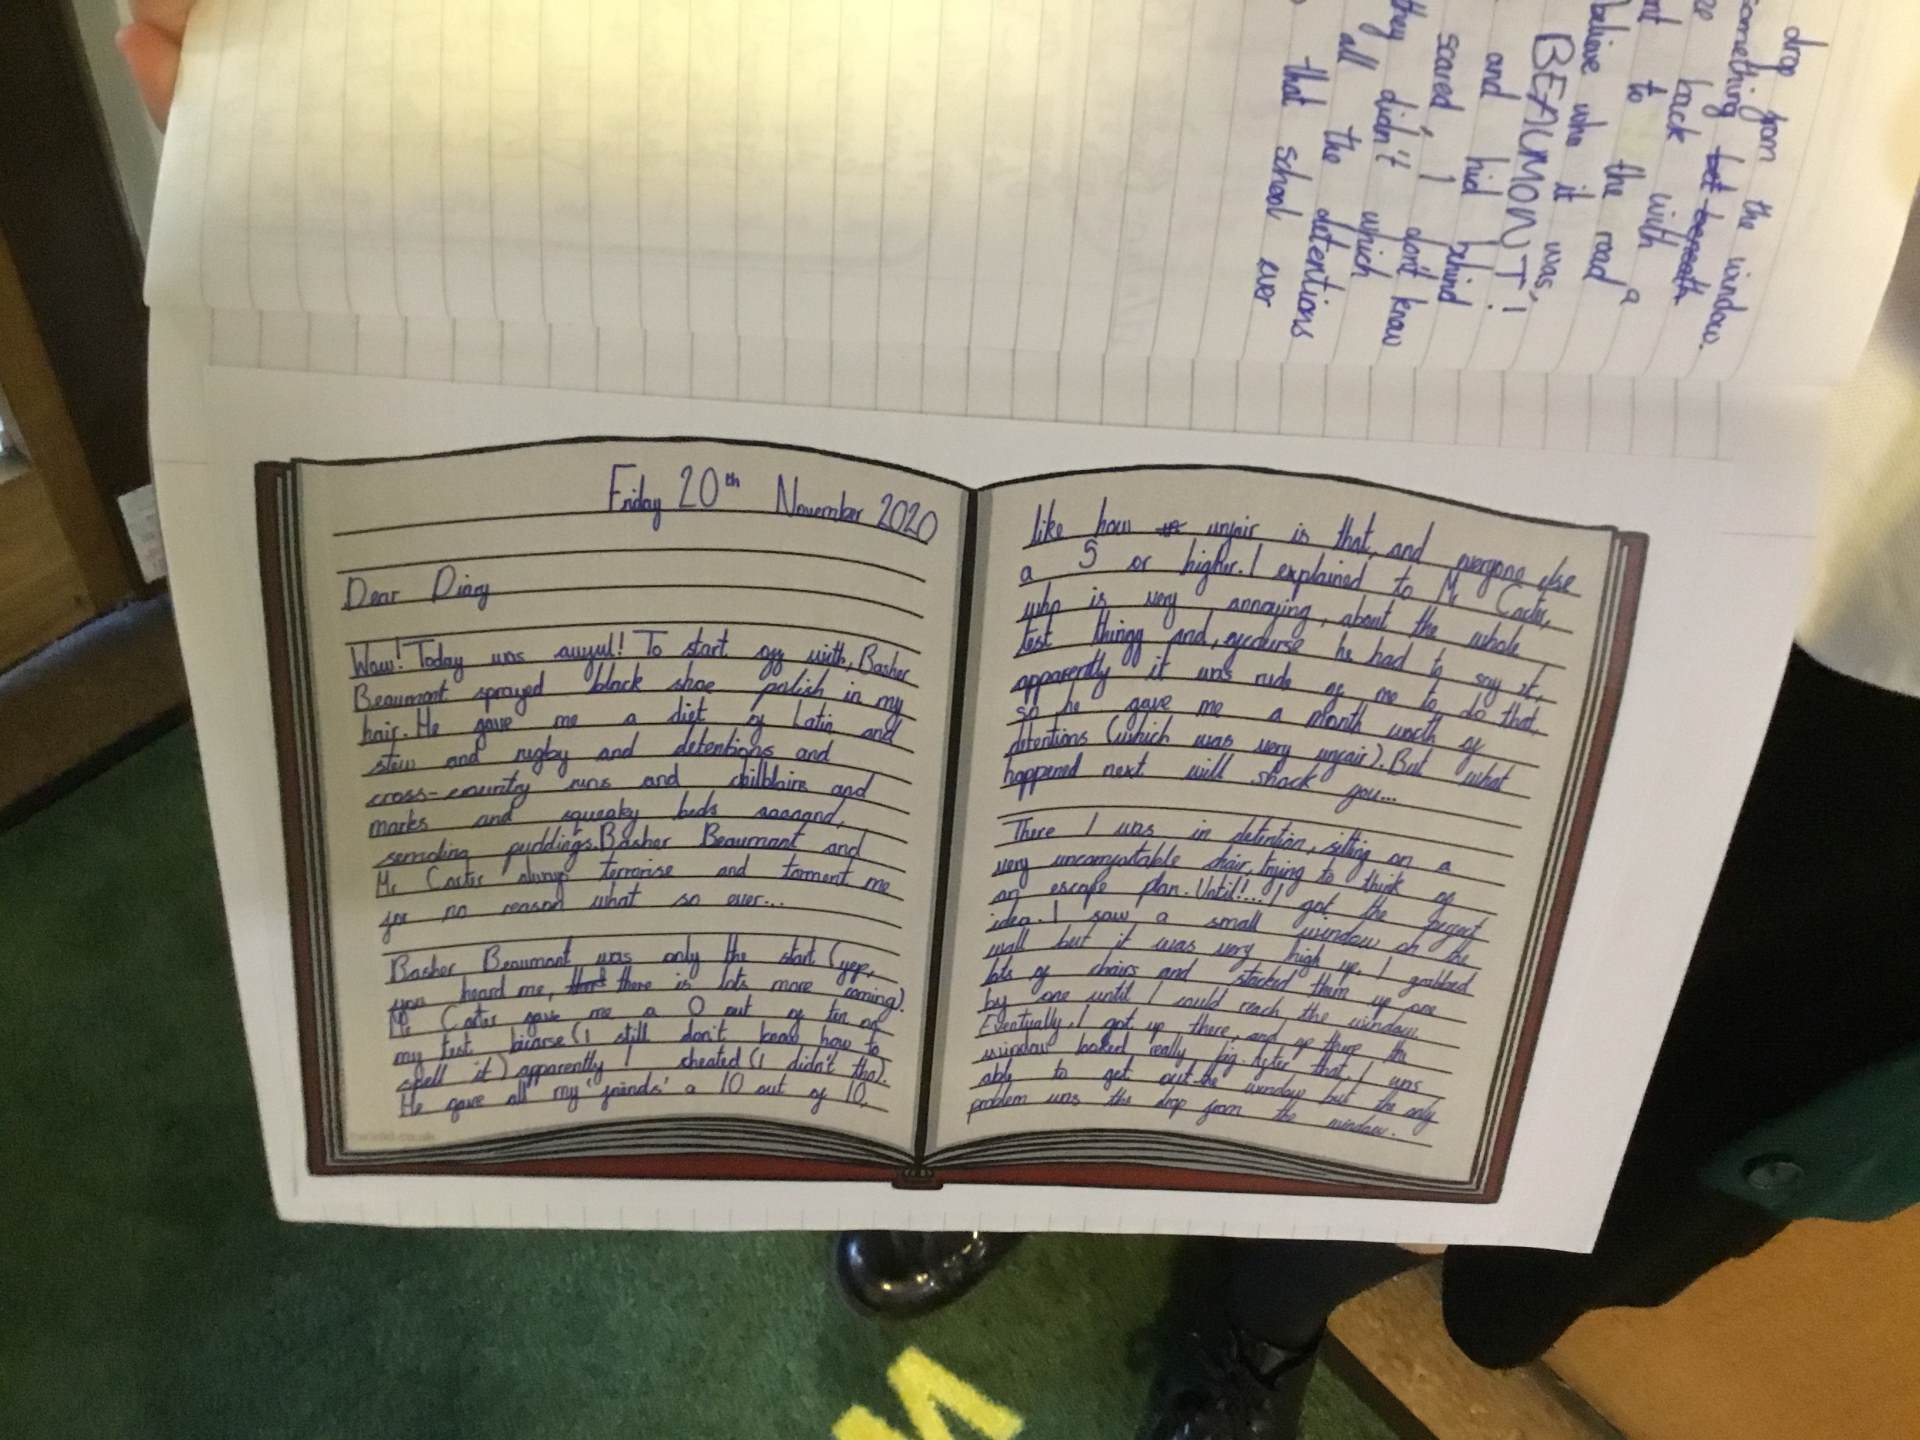 Friday 20th November 2020
Dear Diary
Wow! Today was awful! To start off with, Basher
Beaumont sprayed black shoe polish in my
hair. He gave me a diet of Latin and
stew and rugby and detentions and
cross-country runs and chilblains and
marks and squeaky beds aaaand,
semolina puddings. Basher Beaumont and
Mr Carter always terrorise and torment me
for no reason what so ever...
Basher Beaumont was only the start (yep,
you heard me, there is lots more coming).
Mr Carter gave me a 0 out of ten on
my test (I still don't know how to
spell it) apparently I cheated (I didn't tho).
He gave all my 'friends' a 10 out of 10,
like how unfair is that, and everyone else
a 5 or higher. I explained to Mr Carter,
who is very annoying, about the whole
test thingy and, ofcourse he had to say it,
apparently it was rude of me to do that,
so he gave me a month worth of
detentions (which was very unfair). But what
happened next will shock you...
There I was in detention, sitting on a
very uncomfortable chair, trying to think of
an escape plan. Until!... I got the perfect
idea. I saw a small window on the
wall but it was very high up. I grabbed
lots of chairs and stacked them up one
by one until I could reach the window.
Eventually, I got up there, and up there the
window looked really big. After that, I was
able to get out the window but the only
problem was the drop from the window.
drop from the window.
something but beneath
back with
to the road
believe who it was,
BEAUMONT!
and hid behind
scared, I don't know
they didn't which
all the detentions
that school ever